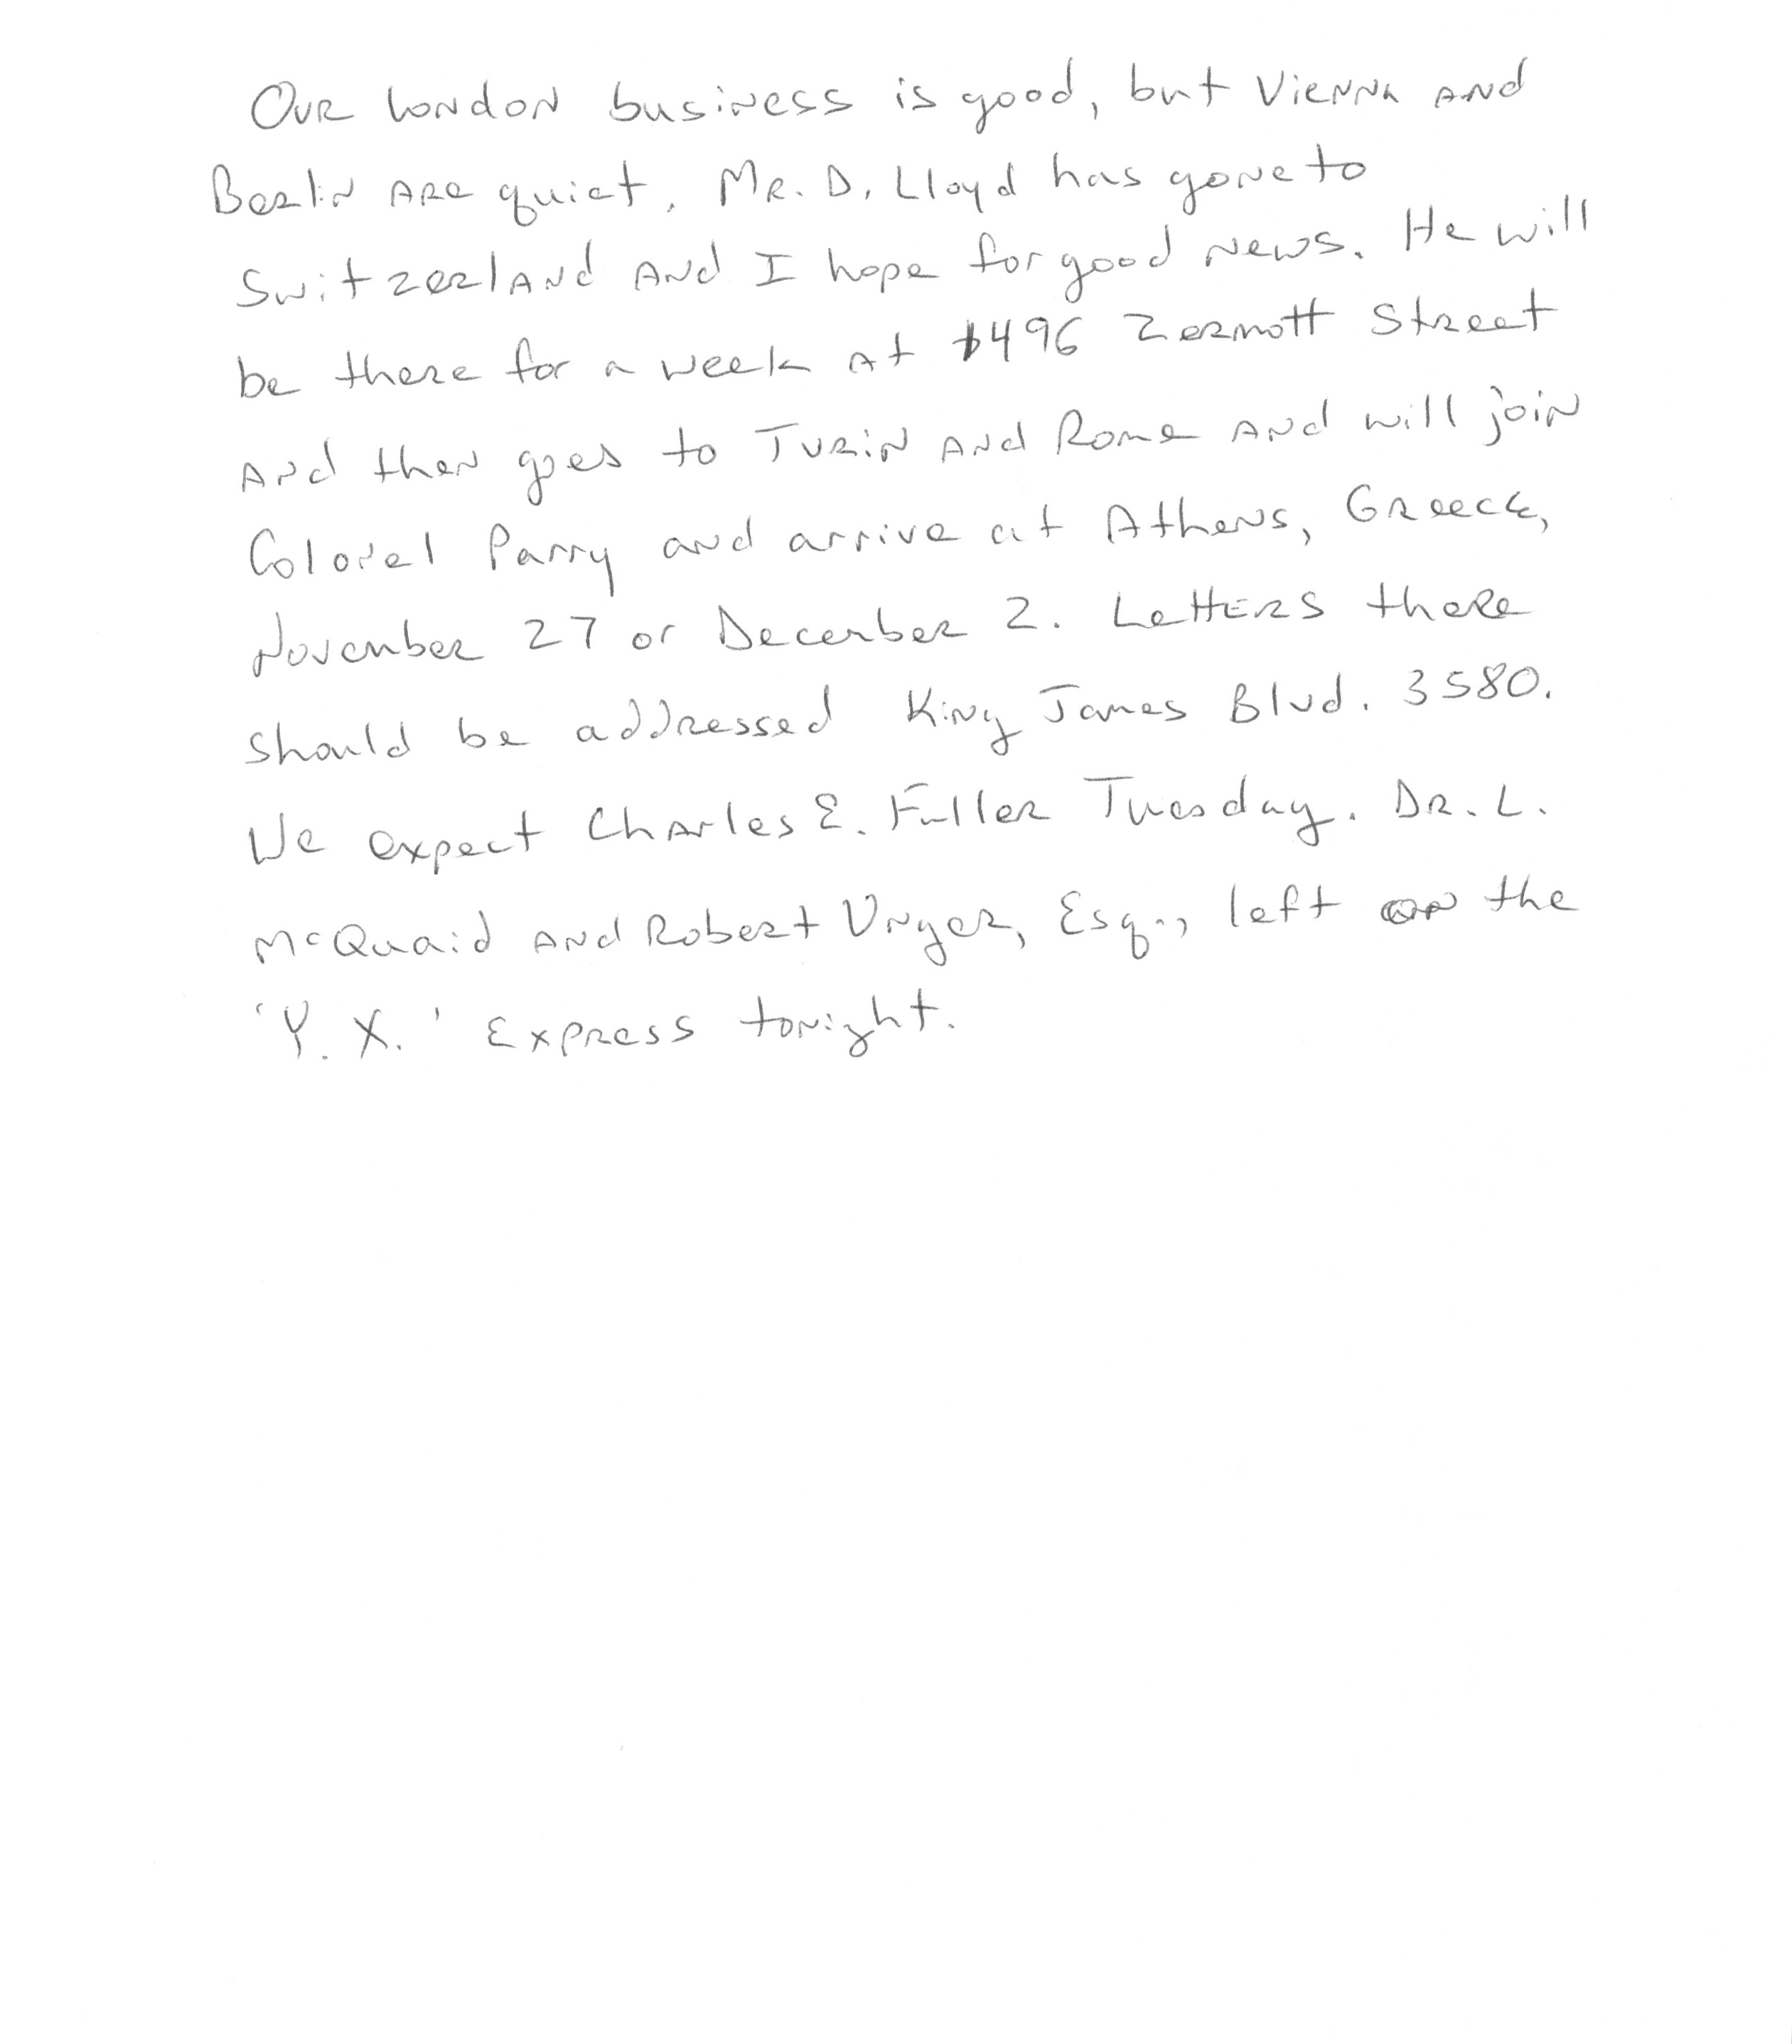 Our London business is good, but Vienna and
Berlin are quiet. Mr. D. Lloyd has gone to
Switzerland and I hope for good news. He will
be there for a week at 1496 Zermott Street
and then goes to Turin and Rome and will join
Colonel Parry and arrive at Athens, Greece,
November 27 or December 2. Letters there
should be addressed King James Blvd. 3580.
We expect Charles E. Fuller Tuesday. Dr. L.
McQuaid and Robert Unger, Esq., left on the
'Y. X.' Express tonight.